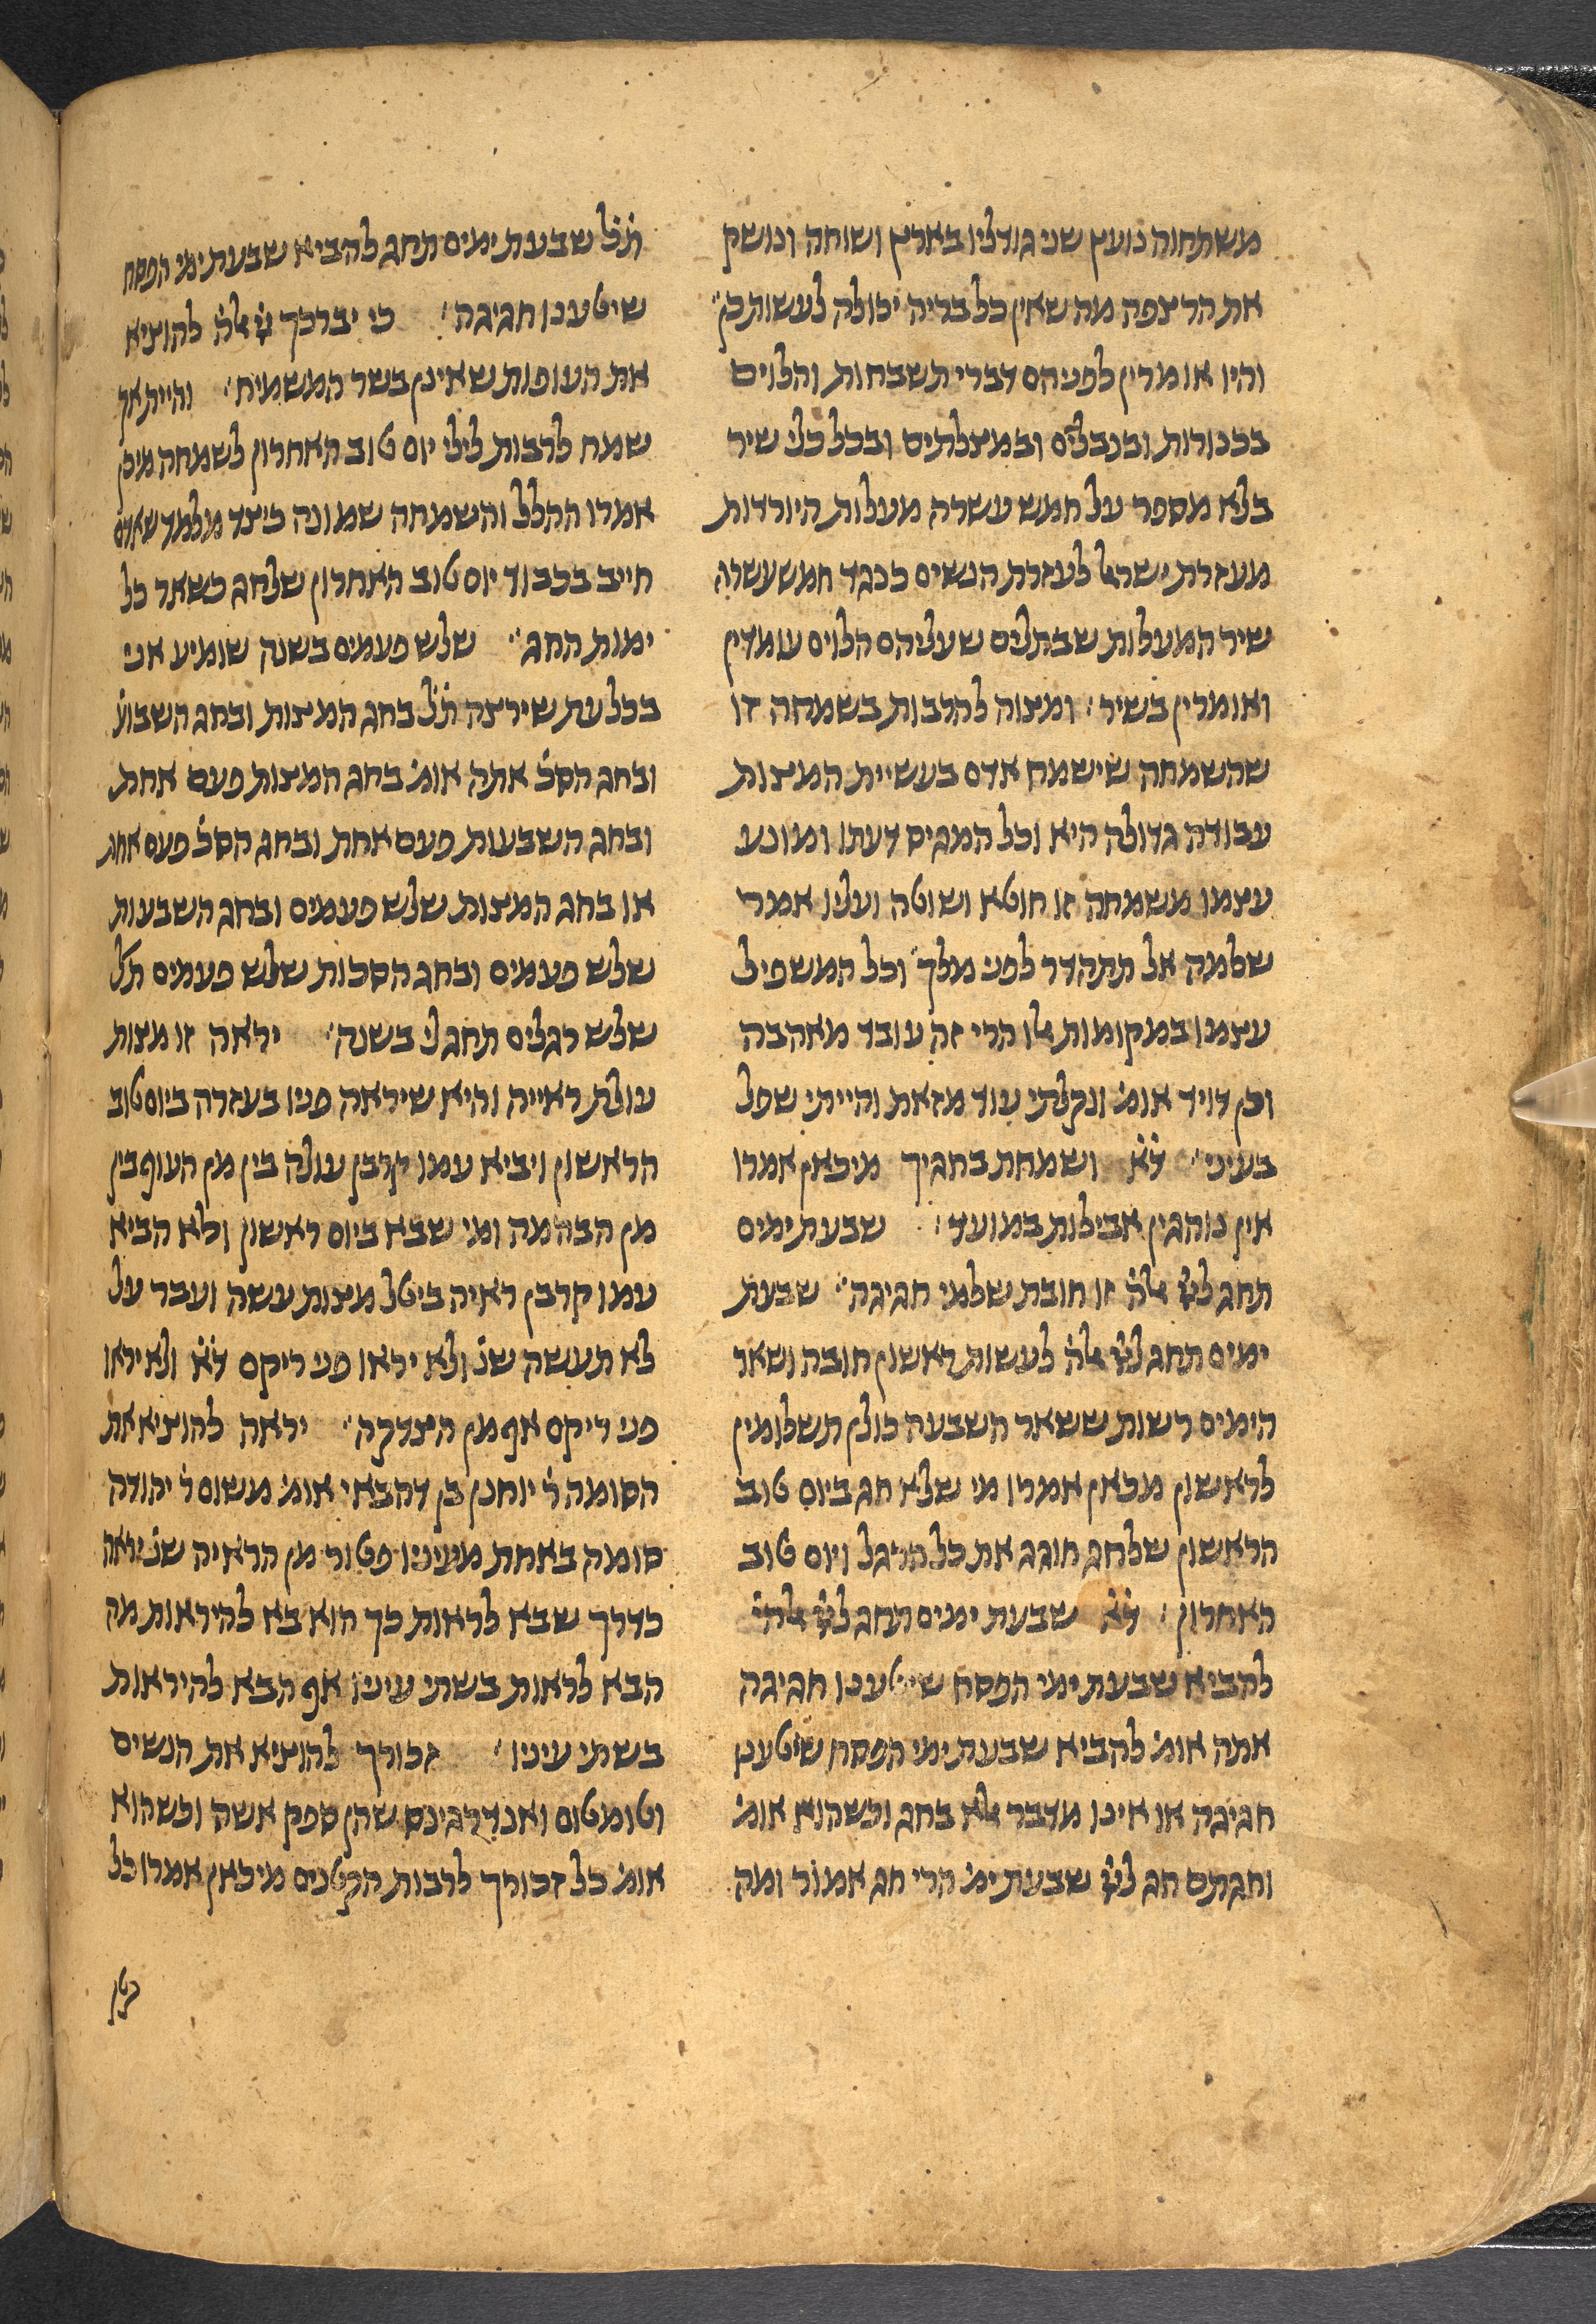 משתחוה נועץ שני גודליו בארץ ושוחה ונושק
את הרצפה מה שאין כל בריה יכולה לעשות כן
והיו אומרין לפניהם דברי תשבחות והלוים
בכנורות ובנבלים ובמצלתים ובכל כלי שיר
בלא מספר על חמש עשרה מעלות היורדות
מעזרת ישראל לעזרת הנשים כנגד חמש עשרה
שיר המעלות שבתלים שעליהם הלוים עומדין
ואומרין בשיר ׃ ומצוה להרבות בשמחה זו
שהשמחה שישמח אדם בעשיית המצות
עבודה גדולה היא וכל המגיס דעתו ומונע
עצמו משמחה זו חוטא ושוטה ועליו אמר
שלמה אל תתהדר לפני מלך וכל המשפיל
עצמו במקומות אלו הרי זה עובד מאהבה
וכן דויד אומ׳ ונקלתי עוד מזאת והייתי שפל
בעיני ׃ ד̇א̇ ושמחת בחגיך מיכאן אמרו
אין נוהגין אבילות במועד ׃ שבעת ימים
תחג לי̇י̇ אלה̇ זו חובת שלמי חגיגה ׃ שבעת
ימים תחג לי̇י̇ אלה̇ לעשות ראשון חובה ושאר
הימים רשות ששאר השבעה כולן תשלומין
לראשון מכאן אמרו מי שלא חג ביום טוב
הראשון שלחג חוגג את כל הרגל ויום טוב
האחרון ׃ ד̇א̇ שבעת ימים תחג לי̇י̇ אלה̇י
להביא שבעת ימי הפסח שיטענו חגיגה
אתה אומ׳ להביא שבעת ימי הפסח שיטענו
חגיגה או אינו מדבר אלא בחג וכשהוא אומ׳
וחגתם חג לי̇י̇ שבעת ימ׳ הרי חג אמור ומה
ת̇ל̇ שבעת ימים תחג להביא שבעת ימי הפסח
שיטענו חגיגה ׃ כי יברכך י̇י̇ אלה̇ להוציא
את העופות שאינן בשר המשמיח ׃ והיית אך
שמח לרבות לילי יום טוב האחרון לשמחה מיכן
אמרו ההלל והשמחה שמונה כיצד מלמד שאדם
חייב בכבוד יום טוב האחרון שלחג כשאר כל
ימות החג ׃ שלש פעמים בשנה שומיע אני
בכל עת שירצה ת̇ל̇ בחג המצות ובחג השבוע̇
ובחג הסכ̇ אתה אומ׳ בחג המצות פעם אחת
ובחג השבעות פעם אחת ובחג הסכ̇ פעם אחת
או בחג המצות שלש פעמים ובחג השבעות
שלש פעמים ובחג הסכות שלש פעמים ת̇ל̇
שלש רגלים תחג לי בשנה ׃ יראה זו מצות
עולת ראייה והיא שיראה פניו בעזרה ביום טוב
הראשון ויביא עמו קרבן עולה בין מן העוף בין
מן הבהמה ומי שבא ביום ראשון ולא הביא
עמו קרבן ראיה ביטל מצות עשה ועבר על
לא תעשה שנ̇ ולא יראו פני ריקם ד̇א̇ ולא יראו
פני ריקם אף מן הצדקה ׃ יראה להוציא את
הסומה ר̇ יוחנן בן דהבאי אומ׳ משום ר̇ יהודה
סומה באחת מעיניו פטור מן הראיה שנ̇ יראה
כדרך שבא לראות כך הוא בא להיראות מה
הבא לראות בשתי עיניו אף הבא להיראות
בשתי עיניו ׃ זכורך להוציא את הנשים
וטומטום ואנדרגינס שהן ספק אשה וכשהוא
אומ׳ כל זכורך לרבות הקטנים מיכאן אמרו כל
קטן